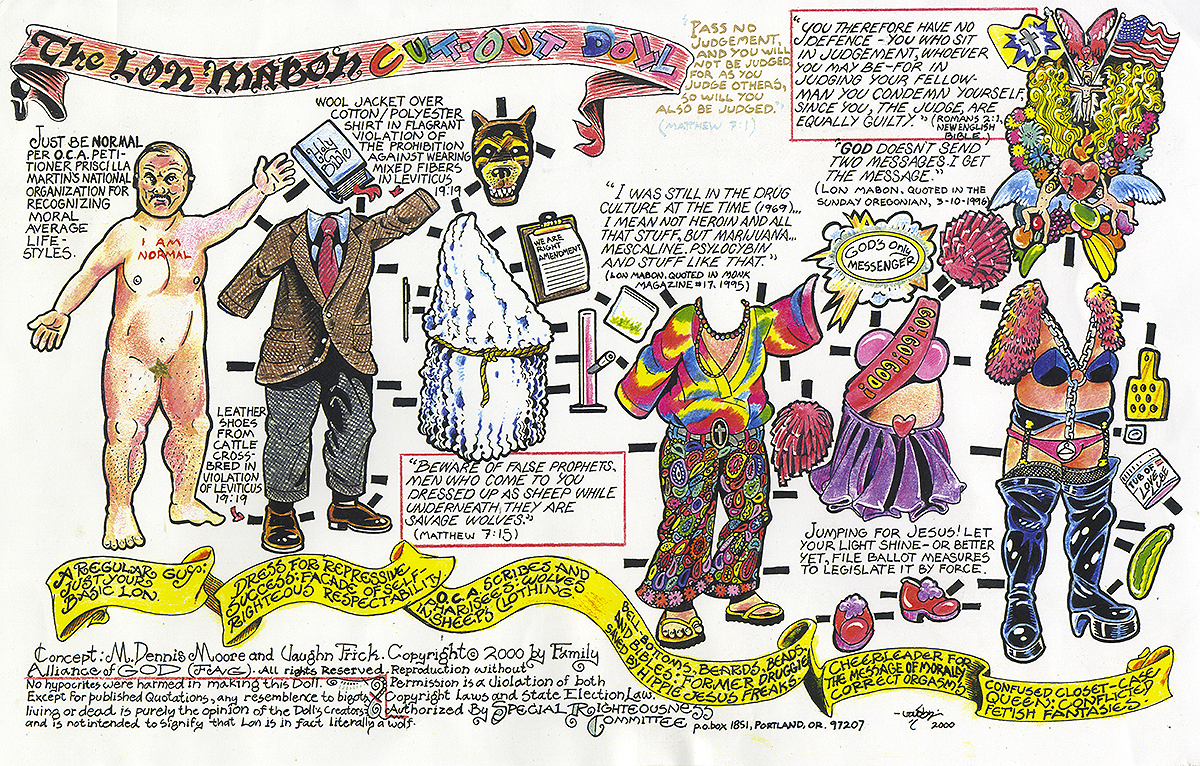 The LON MABON CUT-OUT DOLL
"PASS NO
JUDGEMENT,
AND YOU WILL
NOT BE JUDGED
FOR AS YOU
JUDGE OTHERS,
SO WILL YOU
ALSO BE JUDGED."
(MATTHEW 7:1)
"YOU THEREFORE HAVE NO
DEFENCE - YOU WHO SIT
IN JUDGEMENT, WHOEVER
YOU MAY BE - FOR IN
JUDGING YOUR FELLOW-
MAN YOU CONDEMN YOURSELF,
SINCE YOU, THE JUDGE, ARE
EQUALLY GUILTY." (ROMANS 2:1,
NEW ENGLISH
BIBLE.)
"GOD DOESN'T SEND
TWO MESSAGES. I GET
THE MESSAGE."
(LON MABON, QUOTED IN THE
SUNDAY OREGONIAN, 3-10-1996)
JUST BE NORMAL
PER O.C.A. PETI-
TIONER PRISCILLA
MARTIN'S NATIONAL
ORGANIZATION FOR
RECOGNIZING
MORAL
AVERAGE
LIFE-
STYLES.
I AM
NORMAL
WOOL JACKET OVER
COTTON/POLYESTER
SHIRT IN FLAGRANT
VIOLATION OF
THE PROHIBITION
AGAINST WEARING
MIXED FIBERS
IN LEVITICUS
19:19
Holy
Bible
LEATHER
SHOES
FROM
CATTLE
CROSS-
BRED IN
VIOLATION
OF LEVITICUS
19:19
WE ARE
RIGHT
AMENDMENT
"I WAS STILL IN THE DRUG
CULTURE AT THE TIME (1969)...
I MEAN NOT HEROIN AND ALL
THAT STUFF, BUT MARIJUANA...
MESCALINE, PSYLOCYBIN
AND STUFF LIKE THAT."
(LON MABON, QUOTED IN MONK
MAGAZINE #17, 1995)
"BEWARE OF FALSE PROPHETS,
MEN WHO COME TO YOU
DRESSED UP AS SHEEP WHILE
UNDERNEATH THEY ARE
SAVAGE WOLVES."
(MATTHEW 7:15)
GOD'S ONLY
MESSENGER
GO! GO! GOD!
JUMPING FOR JESUS! LET
YOUR LIGHT SHINE - OR BETTER
YET, FILE BALLOT MEASURES
TO LEGISLATE IT BY FORCE.
TUB OF
LOVE
A REGULAR GUY:
JUST YOUR
BASIC LON.
DRESS FOR REPRESSIVE
SUCCESS: FACADE OF SELF-
RIGHTEOUS RESPECTABILITY
O.C.A. SCRIBES AND
PHARISEES: WOLVES
IN SHEEP'S CLOTHING
BELL BOTTOMS, BEARDS, BEADS,
AND BIBLES: FORMER DRUGGIE
SAVED BY HIPPIE JESUS FREAKS
CHEERLEADER FOR
THE MESSAGE OF MORALLY
CORRECT ORGASMS
CONFUSED CLOSET-CASE
QUEEN: CONFLICTED
FETISH FANTASIES.
Concept: M. Dennis Moore and Vaughn Frick. Copyright © 2000 by Family
Alliance of GOD (FAG). All rights Reserved. Reproduction without
No hypocrites were harmed in making this Doll. Permission is a Violation of both
Except for published Quotations, any resemblence to bigots Copyright Laws and State Election Law.
living or dead is purely the opinion of the Doll's Creators Authorized by SPECIAL RIGHTEOUSNESS
and is not intended to signify that Lon is in fact literally a wolf. COMMITTEE P.O. BOX 1851, PORTLAND, OR. 97207
2000